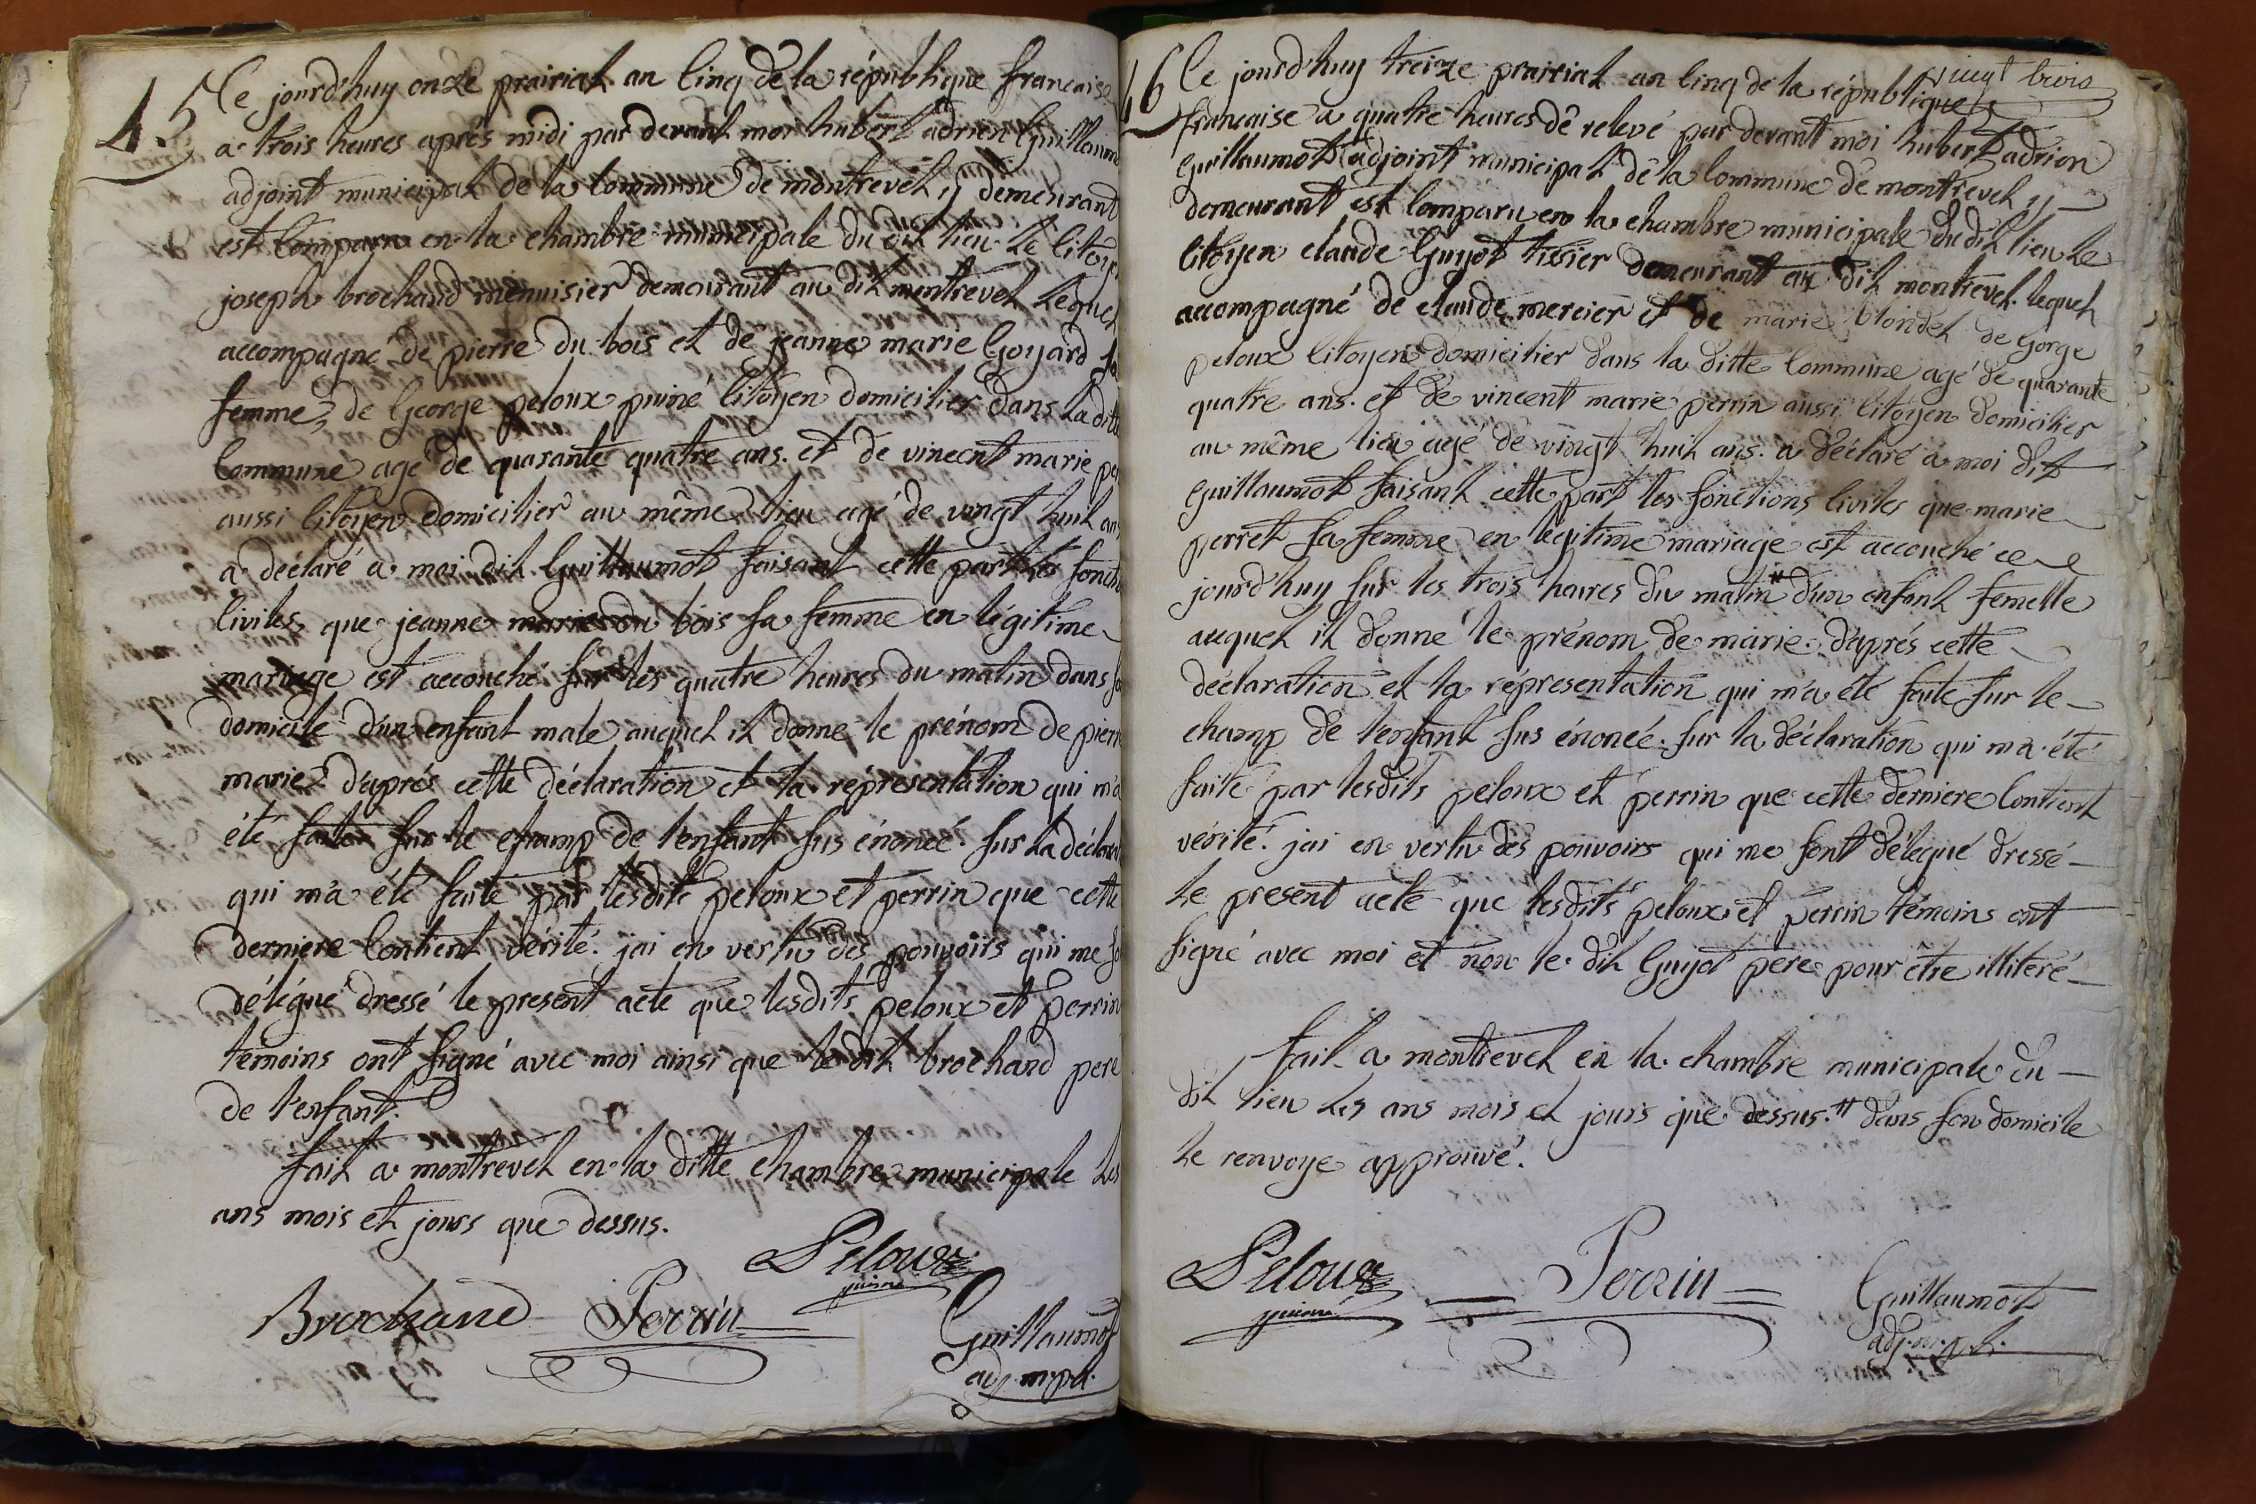 45
Ce jourd'huy onze prairial an Cinq de la république francaise
a trois heures après midi par devant moi hubert adrien Guillaumot
adjoint municipal de la Commune de montrevel y demeurant
est Comparu en la chambre municipale du dit lieu le Citoyen
joseph brochand menuisier demeurant au dit montrevel lequel
accompagné de pierre du bois et de jeanne marie Goyard sa
femme, de George peloux puiné Citoyen domicilier dans la ditte
Commune agé de quarante quatre ans. et de vincent marie per
aussi Citoyen domicilier au même lieu agé de vingt huit ans
a déclaré a moi dit Guillaumot faisant cette part les fonctio
Civiles, que jeanne marie du bois sa femme en légitime
mariage est accouché sur les quatre heures du matin dans so
domicile d'un enfant male auquel il donne le prénom de pierre
marie d'après cette déclaration et la réprésentation qui m'a
été faite sur le champ de l'enfant sus énoncé. sur la déclarat
qui m'a été faite par lesdits peloux et perrin que cette
derniere Contient vérité. jai en vertu des pouvoirs qui me so
délégué dressé le present acte que lesdits peloux et perrin
témoins ont signé avec moi ainsi que le dit brochand pere
de l'enfant.
fait a montrevel en la ditte chambre municipale les
ans mois et jours que dessus.
Peloux
puiné
Brochand Perrin
Guillaumot
adj. m. pal.
vingt trois
46
Ce jourd'huy treize prairial an Cinq de la république
francaise a quatre heures de relevé par devant moi hubert adrien
Guillaumot adjoint municipal de la Commune de montrevel y
demeurant est Comparu en la chambre municipale du dit lieu le
Citoyen claude Guyot tisier demeurant au dit montrevel lequel
accompagné de claude mercier et de marie blondel de Gorge
peloux Citoyen domicilier dans la ditte Commune agé de quarante
quatre ans. et de vincent marie perrin aussi Citoyen domicilier
au même lieu agé de vingt huit ans. a déclaré a moi dit
Guillaumot faisant cette part les fonctions Civiles que marie
perret sa femme en légitime mariage est accouché ce
jourd'huy sur les trois heures du matin # d'un enfant femelle
auquel il donne le prénom de marie. d'aprés cette
déclaration et la réprésentation qui m'a été faite sur le
champ de l'enfant sus énoncé. sur la déclaration qui m'a été
faite par lesdits peloux et perrin que cette derniere Contient
vérité. jai en vertu des pouvoirs qui me sont délégué dressé
le present acte que lesdits peloux et perrin témoins ont
signé avec moi et non le dit Guyot pere pour être illiteré
fait a montrevel en la chambre municipale du
dit lieu les ans mois et jours que dessus. # dans son domicile
le renvoye approuvé.
Peloux
puiné
Perrin
Guillaumot
adj. m. pl.